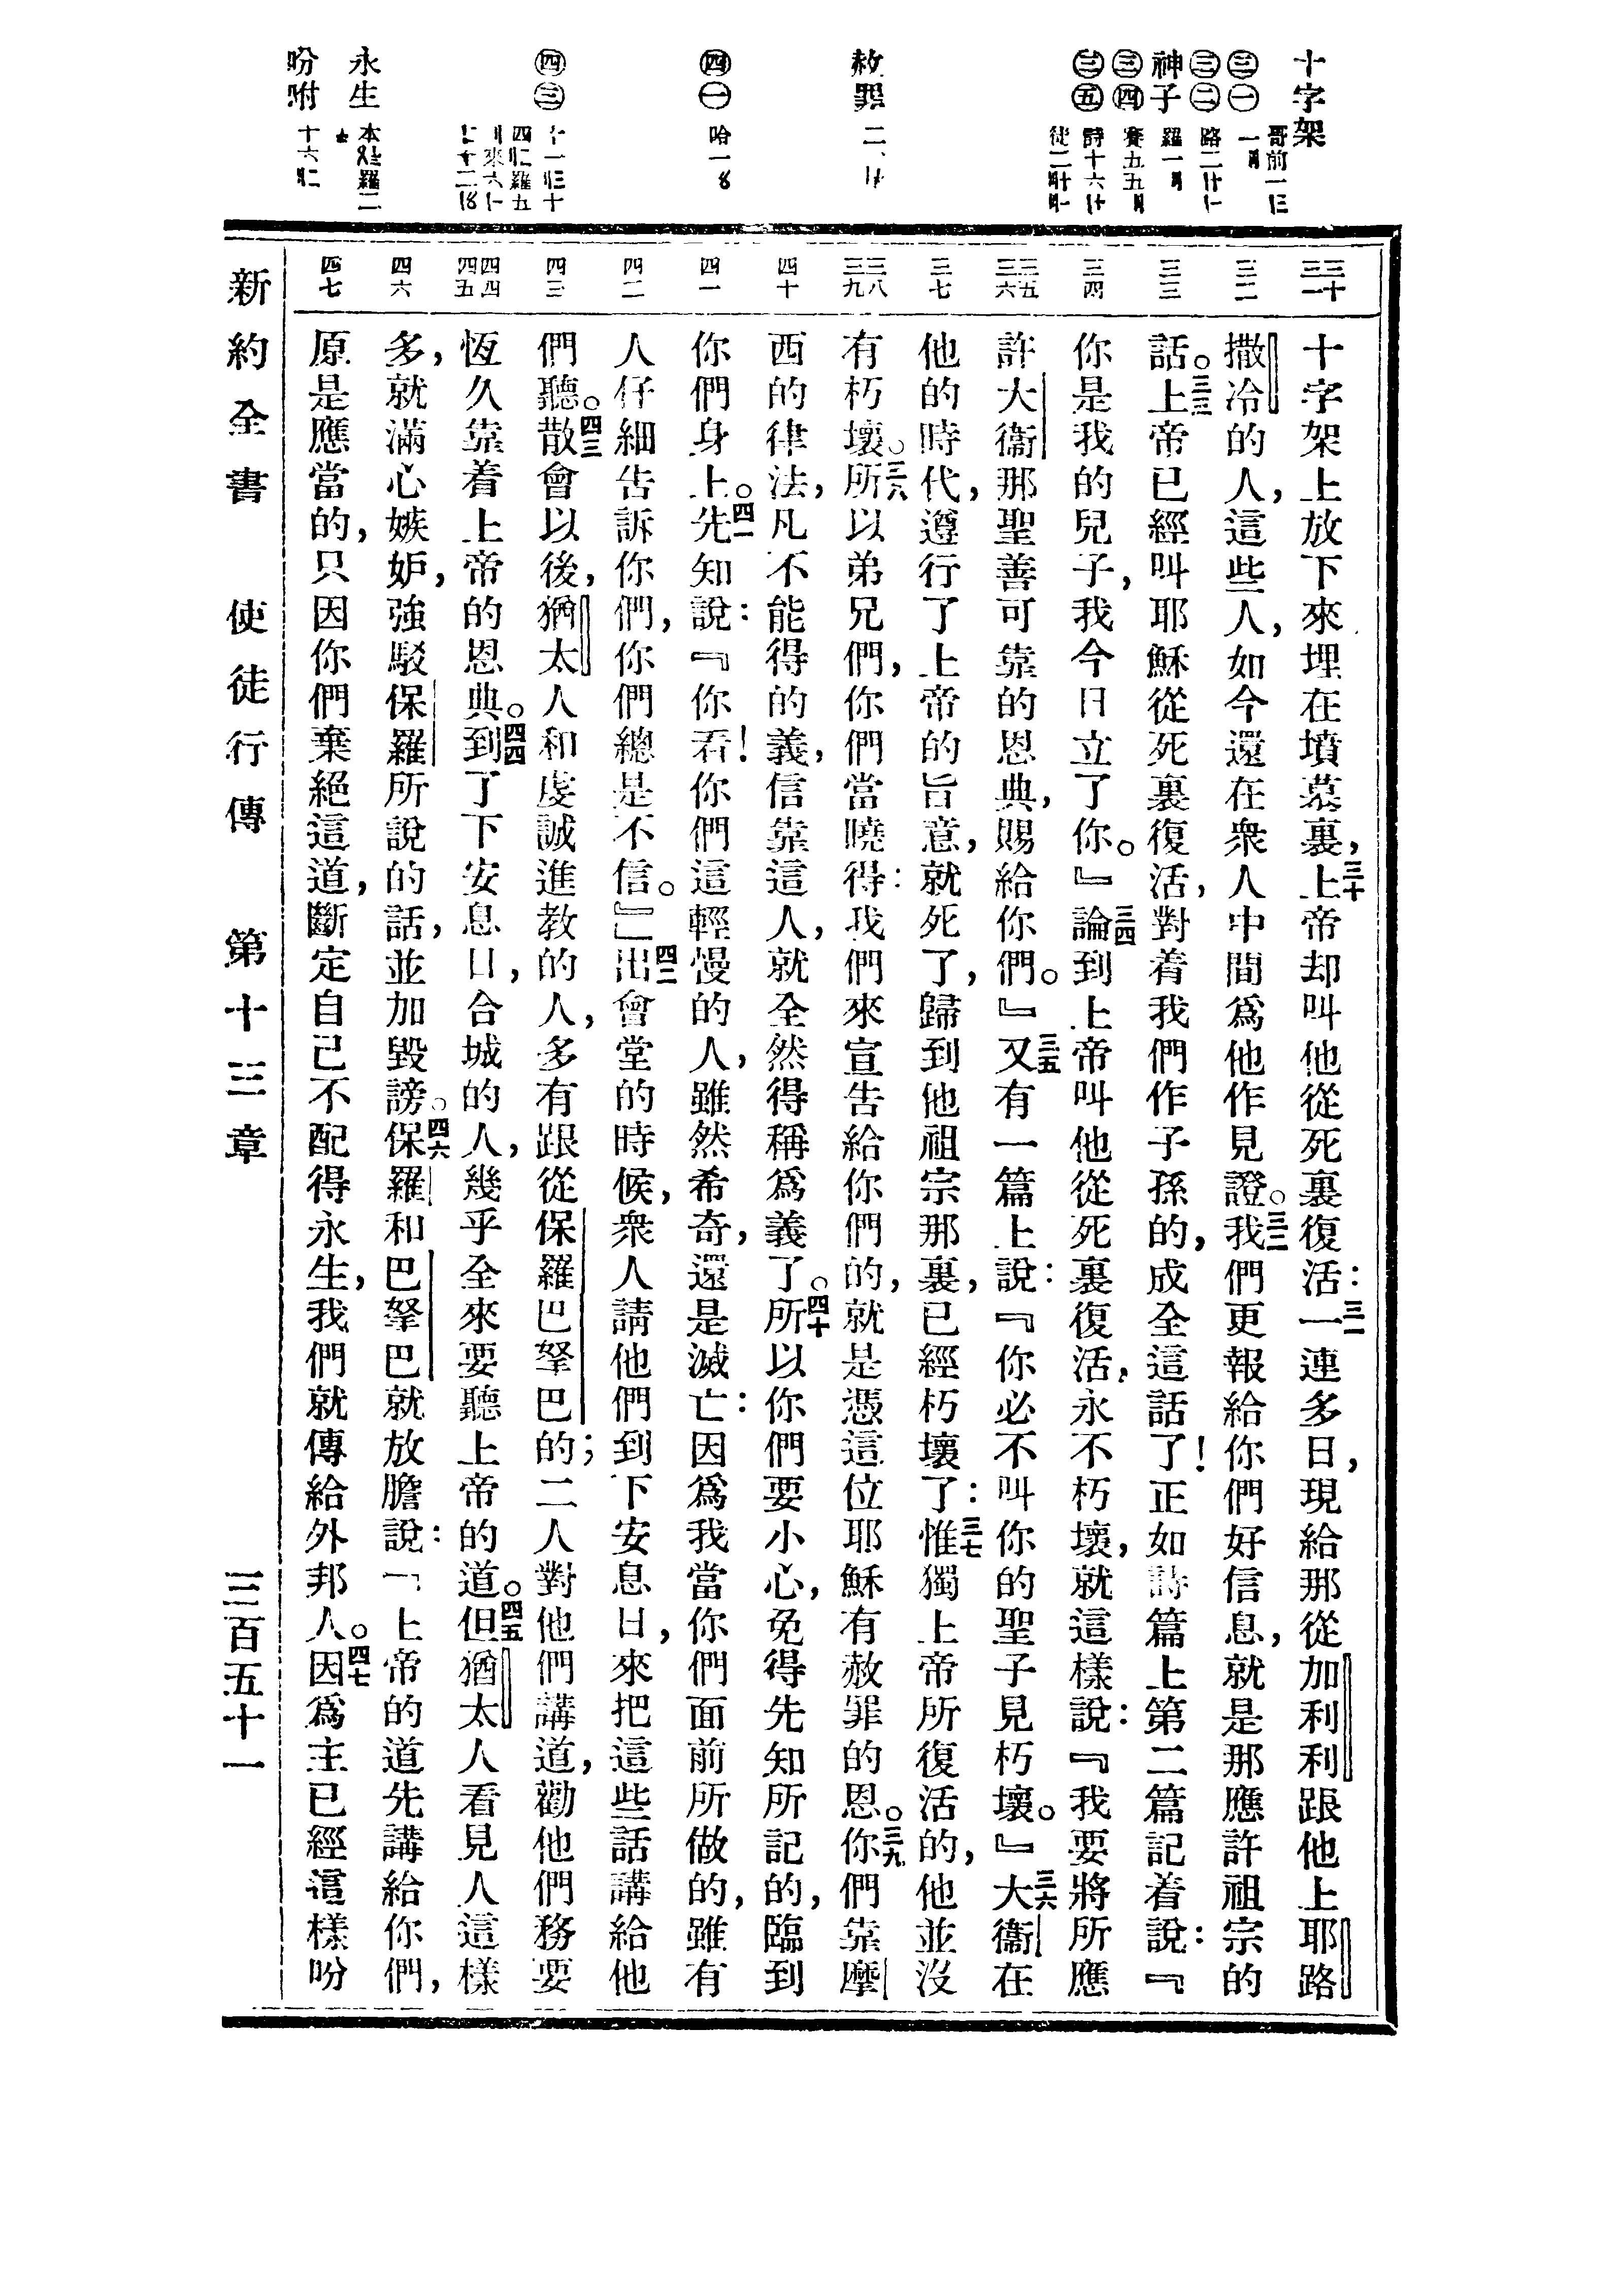 十字架
㊂㊀
哥前一
㊂㊁
路二
神子
羅一
㊂㊃
賽五五
㊂㊄
詩十六
徒二
赦罪
二、
㊃㊀
哈一
㊃㊂
十一
四 羅五
來六
十二
永生
本 羅二
吩咐
十六
三十 三一 三二 三三 三四 三五 三六 三七 三八 三九 四十 四一 四二 四三 四四 四五 四六 四七
十字架上放下來埋在墳墓裏,三十上帝却叫他從死裏復活:三一一連多日,現給那從加利利跟他上耶路
撒冷的人,這些人,如今還在衆人中間爲他作見證。三二我們更報給你們好信息,就是那應許祖宗的
話。三三上帝已經叫耶穌從死裏復活,對着我們作子孫的,成全這話了!正如詩篇上第二篇記着說:『
你是我的兒子,我今日立了你。』三四論到上帝叫他從死裏復活,永不朽壞,就這樣說:『我要將所應
許大衞那聖善可靠的恩典,賜給你們。』三五又有一篇上說:『你必不叫你的聖子見朽壞。』三六大衞在
他的時代,遵行了上帝的旨意,就死了,歸到他祖宗那裏,已經朽壞了:三七惟獨上帝所復活的,他並沒
有朽壞。三八所以弟兄們,你們當曉得:我們來宣告給你們的,就是憑這位耶穌有赦罪的恩。三九你們靠摩
西的律法,凡不能得的義,信靠這人,就全然得稱爲義了。四十所以你們要小心,免得先知所記的,臨到
你們身上。四一先知說:『你看!你們這輕慢的人,雖然希奇,還是滅亡:因爲我當你們面前所做的,雖有
人仔細告訴你們,你們總是不信。』」四二出會堂的時候,衆人請他們到下安息日,來把這些話講給他
們聽。四三散會以後,猶太人和虔誠進教的人,多有跟從保羅巴拏巴的;二人對他們講道,勸他們務要
恆久靠着上帝的恩典。四四到了下安息日,合城的人,幾乎全來要聽上帝的道。四五但猶太人看見人這樣
多,就滿心嫉妒,強駁保羅所說的話,並加毀謗。四六保羅和巴拏巴就放膽說:「上帝的道先講給你們,
原是應當的,只因你們棄絕這道,斷定自己不配得永生,我們就傳給外邦人。四七因爲主已經這樣吩
新約全書 使徒行傳 第十三章 三百五十一